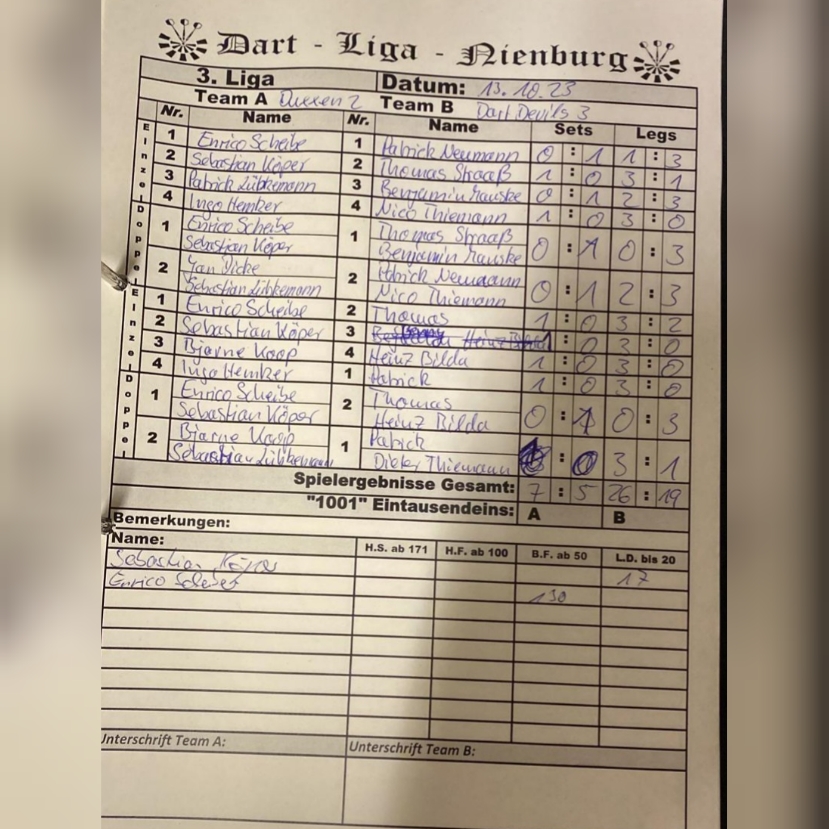 Dart - Liga - Nienburg
3. Liga Datum: 13.10.23
Team A Team B Dart Devils 3
Nr. Name Nr. Name Sets Legs
Einzel
1 Enrico Scheibe 1 Patrick Neumann 0 : 1 1 : 3
2 Sebastian Köper 2 Thomas Straaß 1 : 0 3 : 1
3 Patrick Lübkemann 3 Benjamin 0 : 1 2 : 3
4 Ingo Hemker 4 Nico Thiemann 1 : 0 3 : 0
Doppel
1 Enrico Scheibe 1 Thomas Straaß 0 : 1 0 : 3
Sebastian Köper Benjamin
2 2 Patrick Neumann 0 : 1 2 : 3
Sebastian Lübkemann Nico Thiemann
Einzel
1 Enrico Scheibe 2 Thomas 1 : 0 3 : 2
2 Sebastian Köper 3 1 : 0 3 : 0
3 Bjarne Koop 4 Heinz Bilda 1 : 0 3 : 0
4 Ingo Hemker 1 Patrick 1 : 0 3 : 0
Doppel
1 Enrico Scheibe 2 Thomas 0 : 1 0 : 3
Sebastian Köper Heinz Bilda
2 Bjarne Koop 1 Patrick : 0 3 : 1
Sebastian Lübkemann Dieter Thiemann
Spielergebnisse Gesamt: 7 : 5 26 : 19
"1001" Eintausendeins: A B
Bemerkungen:
Name: H.S. ab 171 H.F. ab 100 B.F. ab 50 L.D. bis 20
Sebastian Köper 17
Enrico 130
Unterschrift Team A: Unterschrift Team B: